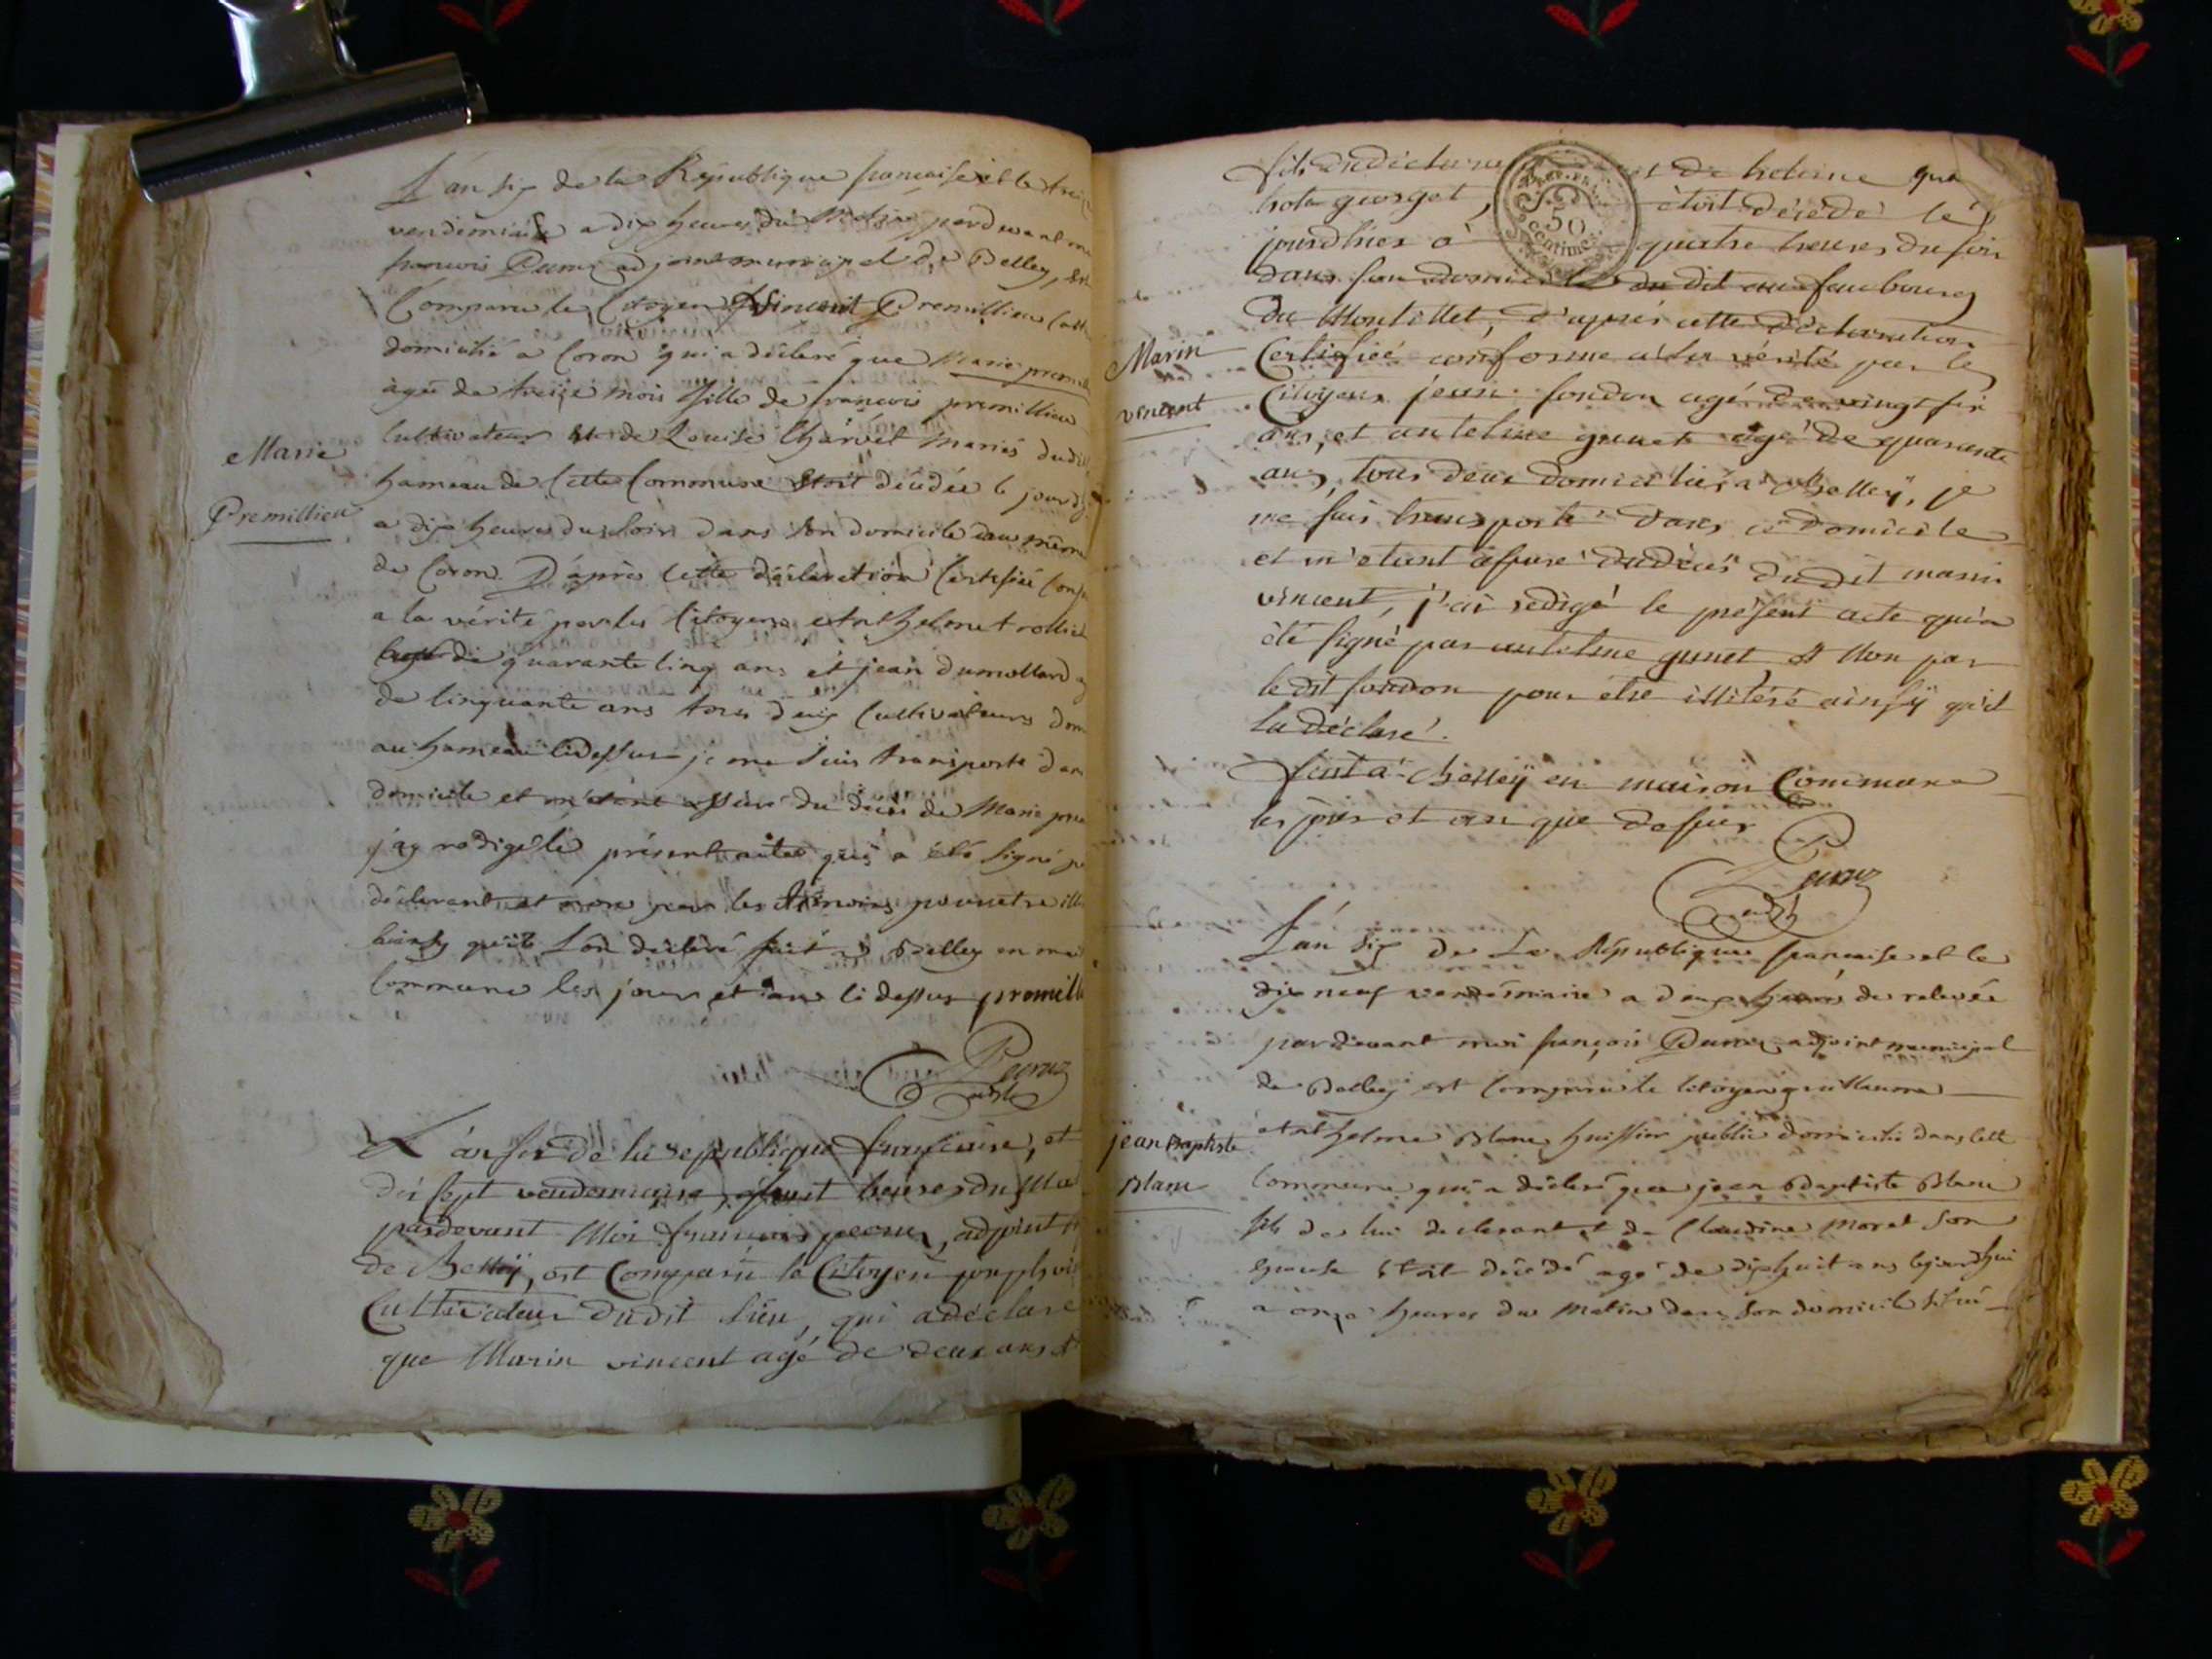 L'an six de la République francaise et le treize
vendemiaire a dix heures du Matin pardevant moi
francois Peruz adjoint municipal de Belley, est
Comparu le Citoyen Vincent Premillieu
domicilié a Coron qui a déclaré que Marie premill
agée de treize mois fille de francois premillieu
Cultivateur et de Louise Charvet mariés dudit
hameau de Cette Commune Etoit décédée le jourd
a dix heures du Soir dans Son domicile au même
de Coron. D'après Cette déclaration Certifiée Conf
a la vérité par les Citoyens Anthelme
agé de quarante Cinq ans et jean dumollard a
de Cinquante ans tous deux Cultivateurs dom
au hameau Cidessus je me Suis transporté dan
domicile et m'étant assuré du décès de Marie prem
j'ay redigé le présent acte qui a été Signé p
déclarant et non par les témoins pour etre ill
ainsy qu'ils L'on déclaré fait a Belley en mai
Commune les jour et an Ci dessus premill
Peruz
adjt
Marie
Premillieu
L'an six de la republique française, et
dix sept vendemiaire, a huit heures du Mat
pardevant Moi françois peruz, adjoint
de Belleÿ, est Comparu le Citoyen joseph vi
Cultivateur dudit Lieu, qui a déclaré
que Marin vincent agé de deux ans et
fils du déclarant et de
georget, étoit décédé le
jourdhier à quatre heures du soir
dans son domicile du dit au faubourg
du Montillet, d'après cette déclaration
Certifiée conforme à la vérité par les
Citoyens jean fondon agé de vingt six
ans, et antelme gunet agé de quarante
ans, tous deux domiciliés a Belleÿ, je
me suis transporté dans ce domicile
et m'etant assuré du décès du dit marin
vincent, j'ai redigé le présent acte qui a
été signé par antelme gunet et Non par
le dit fondon pour etre illitéré ainsÿ qu'il
la déclaré.
fait à Belleÿ en maison Commune
les jour et an que dessus
Peruz
adjt
Marin
vincent
L'an Six de La République francaise et le
dix neuf vendémiaire a deux heures de relevée
pardevant moi françois Peruz adjoint municipal
de Belley est Comparu le Citoyen guillaume
Anthelme Blanc huissier public domicilié dans Cette
Commune qui a déclaré que jean Baptiste Blanc
fils de lui declarant et de Claudine Moret Son
epouse Etoit décédé agé de dixhuit ans le jourdhui
a onze heures du Matin dans Son domicile Situé
jean Baptiste
Blanc
50
centimes